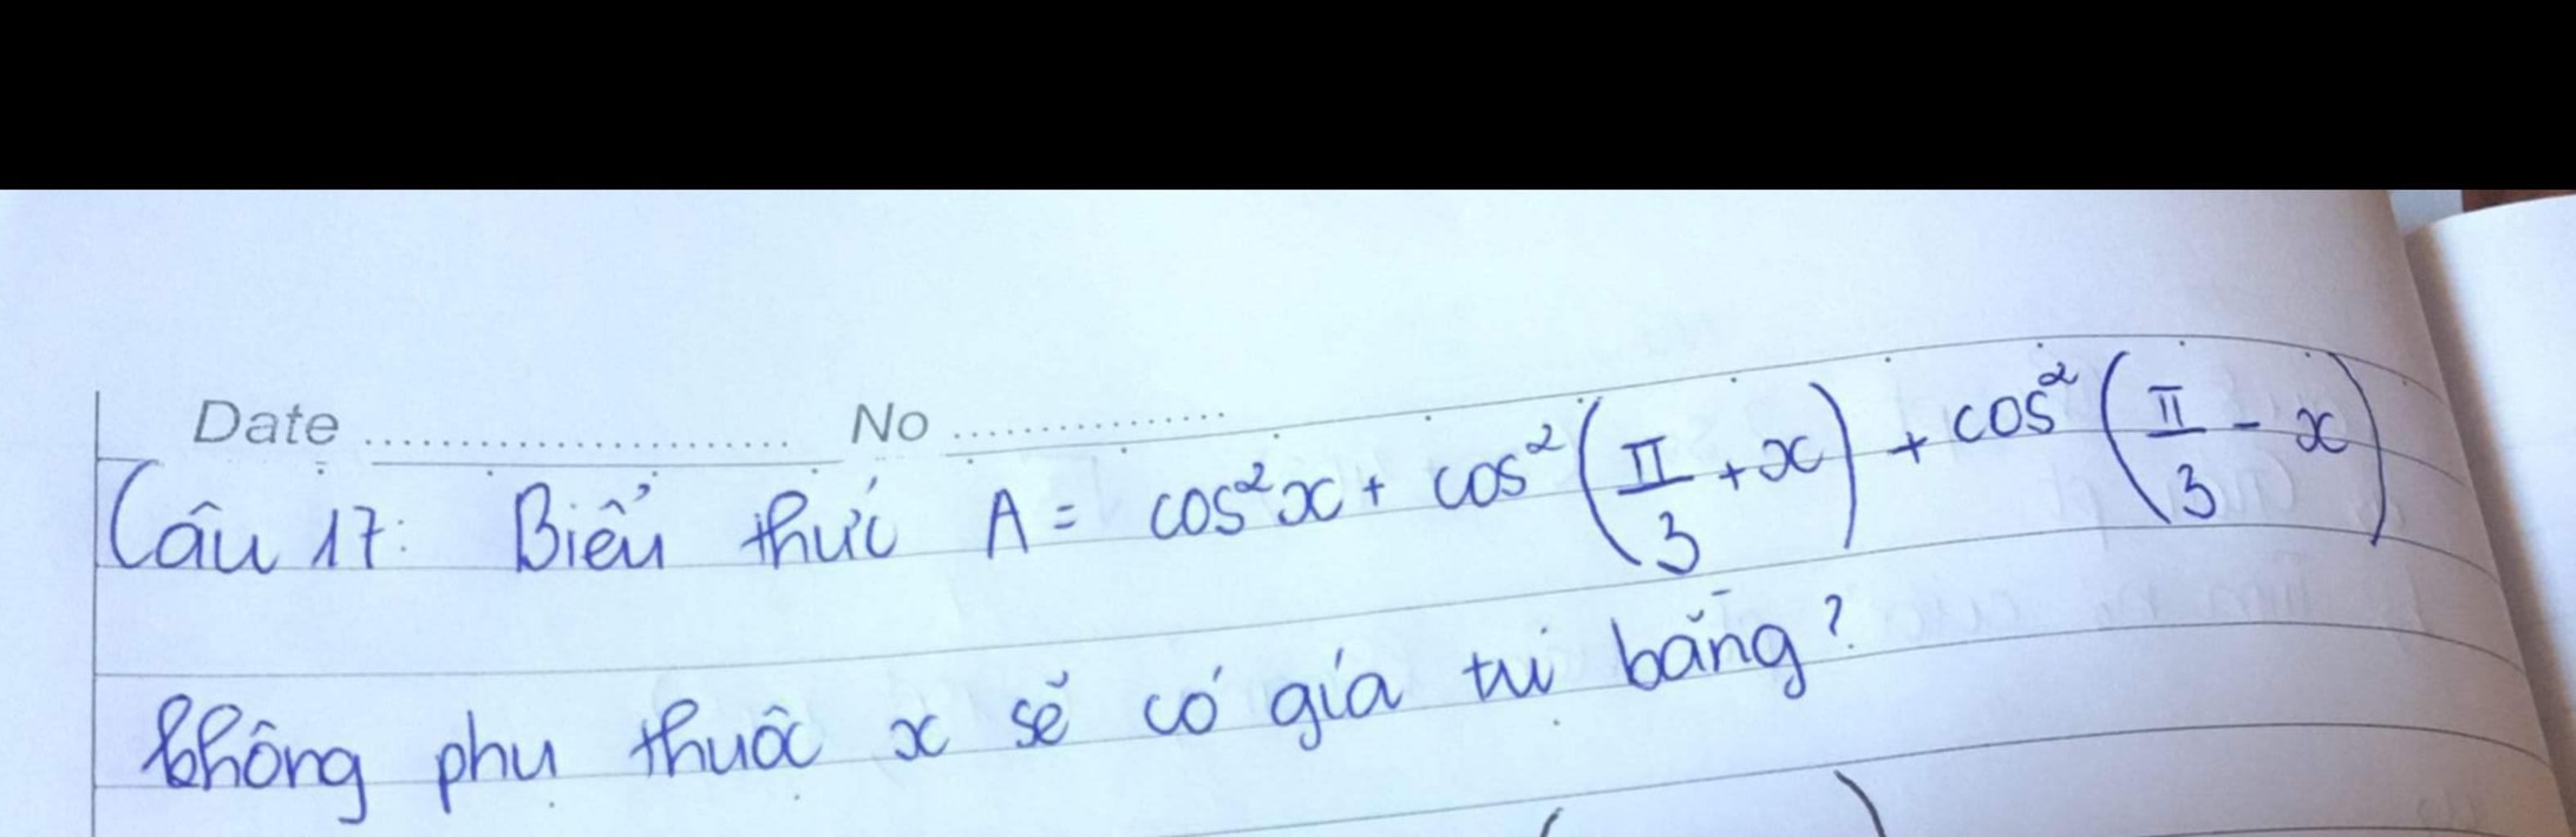 Date ........................ No ................
Câu 17: Biểu thức A = cos²x + cos²(π/3 + x) + cos²(π/3 - x)
không phụ thuộc x sẽ có gía trị bằng?